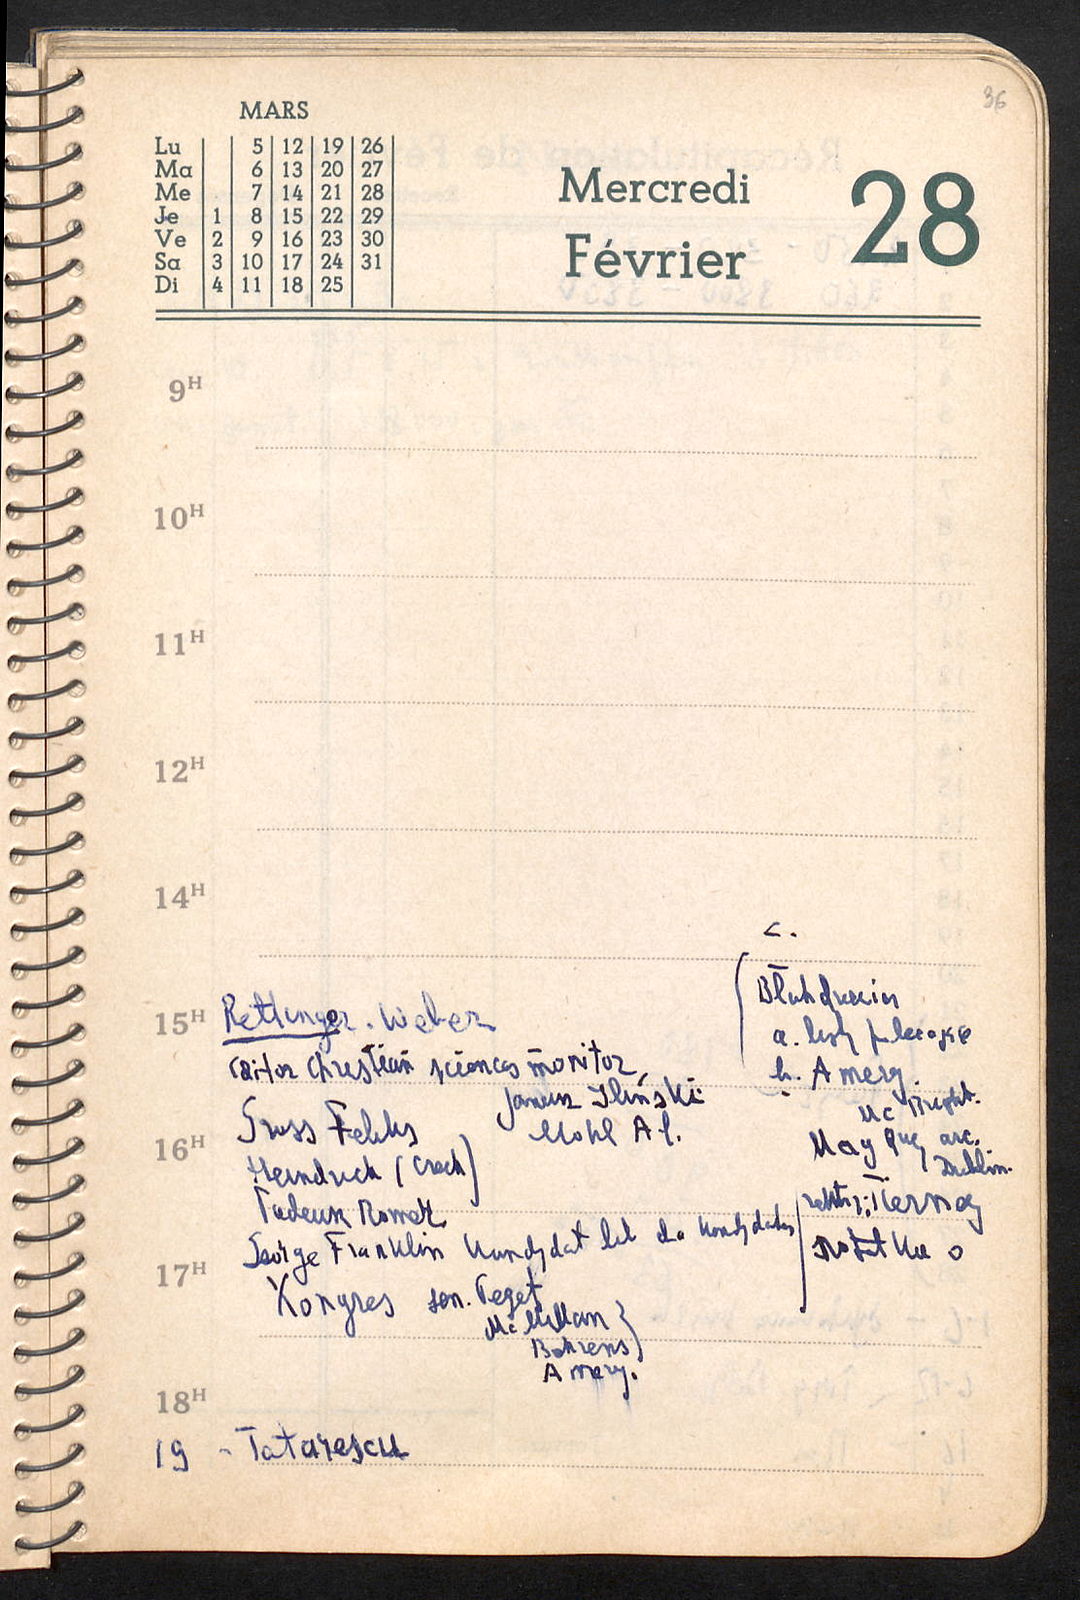 36
MARS
Lu 5 12 19 26
Ma 6 13 20 27
Me 7 14 21 28
Je 1 8 15 22 29
Ve 2 9 16 23 30
Sa 3 10 17 24 31
Di 4 11 18 25
Mercredi 28
Février
9H
10H
11H
12H
14H
c.
15H Rettinger. Weber
a.
editor Christian sciences monitor
b. Amery.
Janusz Iliński
Mc
Gross Feliks
Mohl Al.
16H
May arc.
Dublin.
Heindrich (Czech)
Tadeusz Romer
Tierney
George Franklin Kandydat lub do kandydatury
notatka o
17H
Kongres sen.
McMillan
Behrens
Amery.
18H
19 - Tatarescu